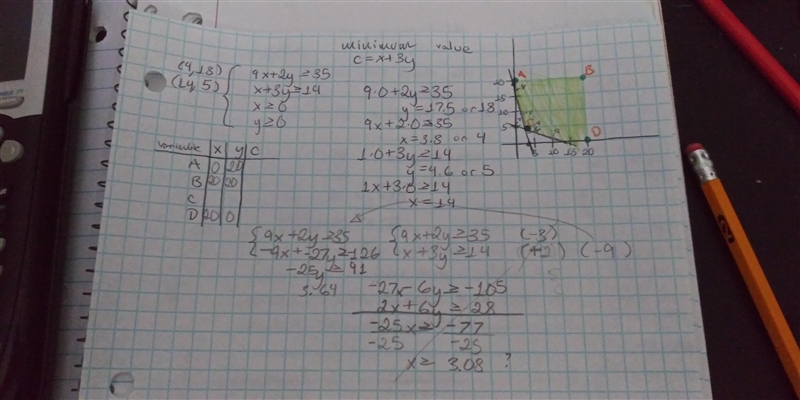 minimum value
c = x+3y
(4,18)
(14,5)
9x+2y ≥ 35
x+3y ≥ 14
x ≥ 0
y ≥ 0
9·0+2y ≥ 35
y = 17.5 or 18
9x+2·0 ≥ 35
x = 3.8 or 4
1·0+3y ≥ 14
y = 4.6 or 5
1x+3·0 ≥ 14
x = 14
variable x y c
A 0 20
B 20 20
C
D 20 0
A B
20
15
10
5
C D
5 10 15 20
9x+2y ≥ 35
-9x+-27y ≥ -126
-25y ≥ 91
3.64
9x+2y ≥ 35 (-3)
x+3y ≥ 14 (+2) (-9)
-27x-6y ≥ -105
2x+6y ≥ 28
-25x ≥ -77
-25 -25
x ≥ 3.08 ?